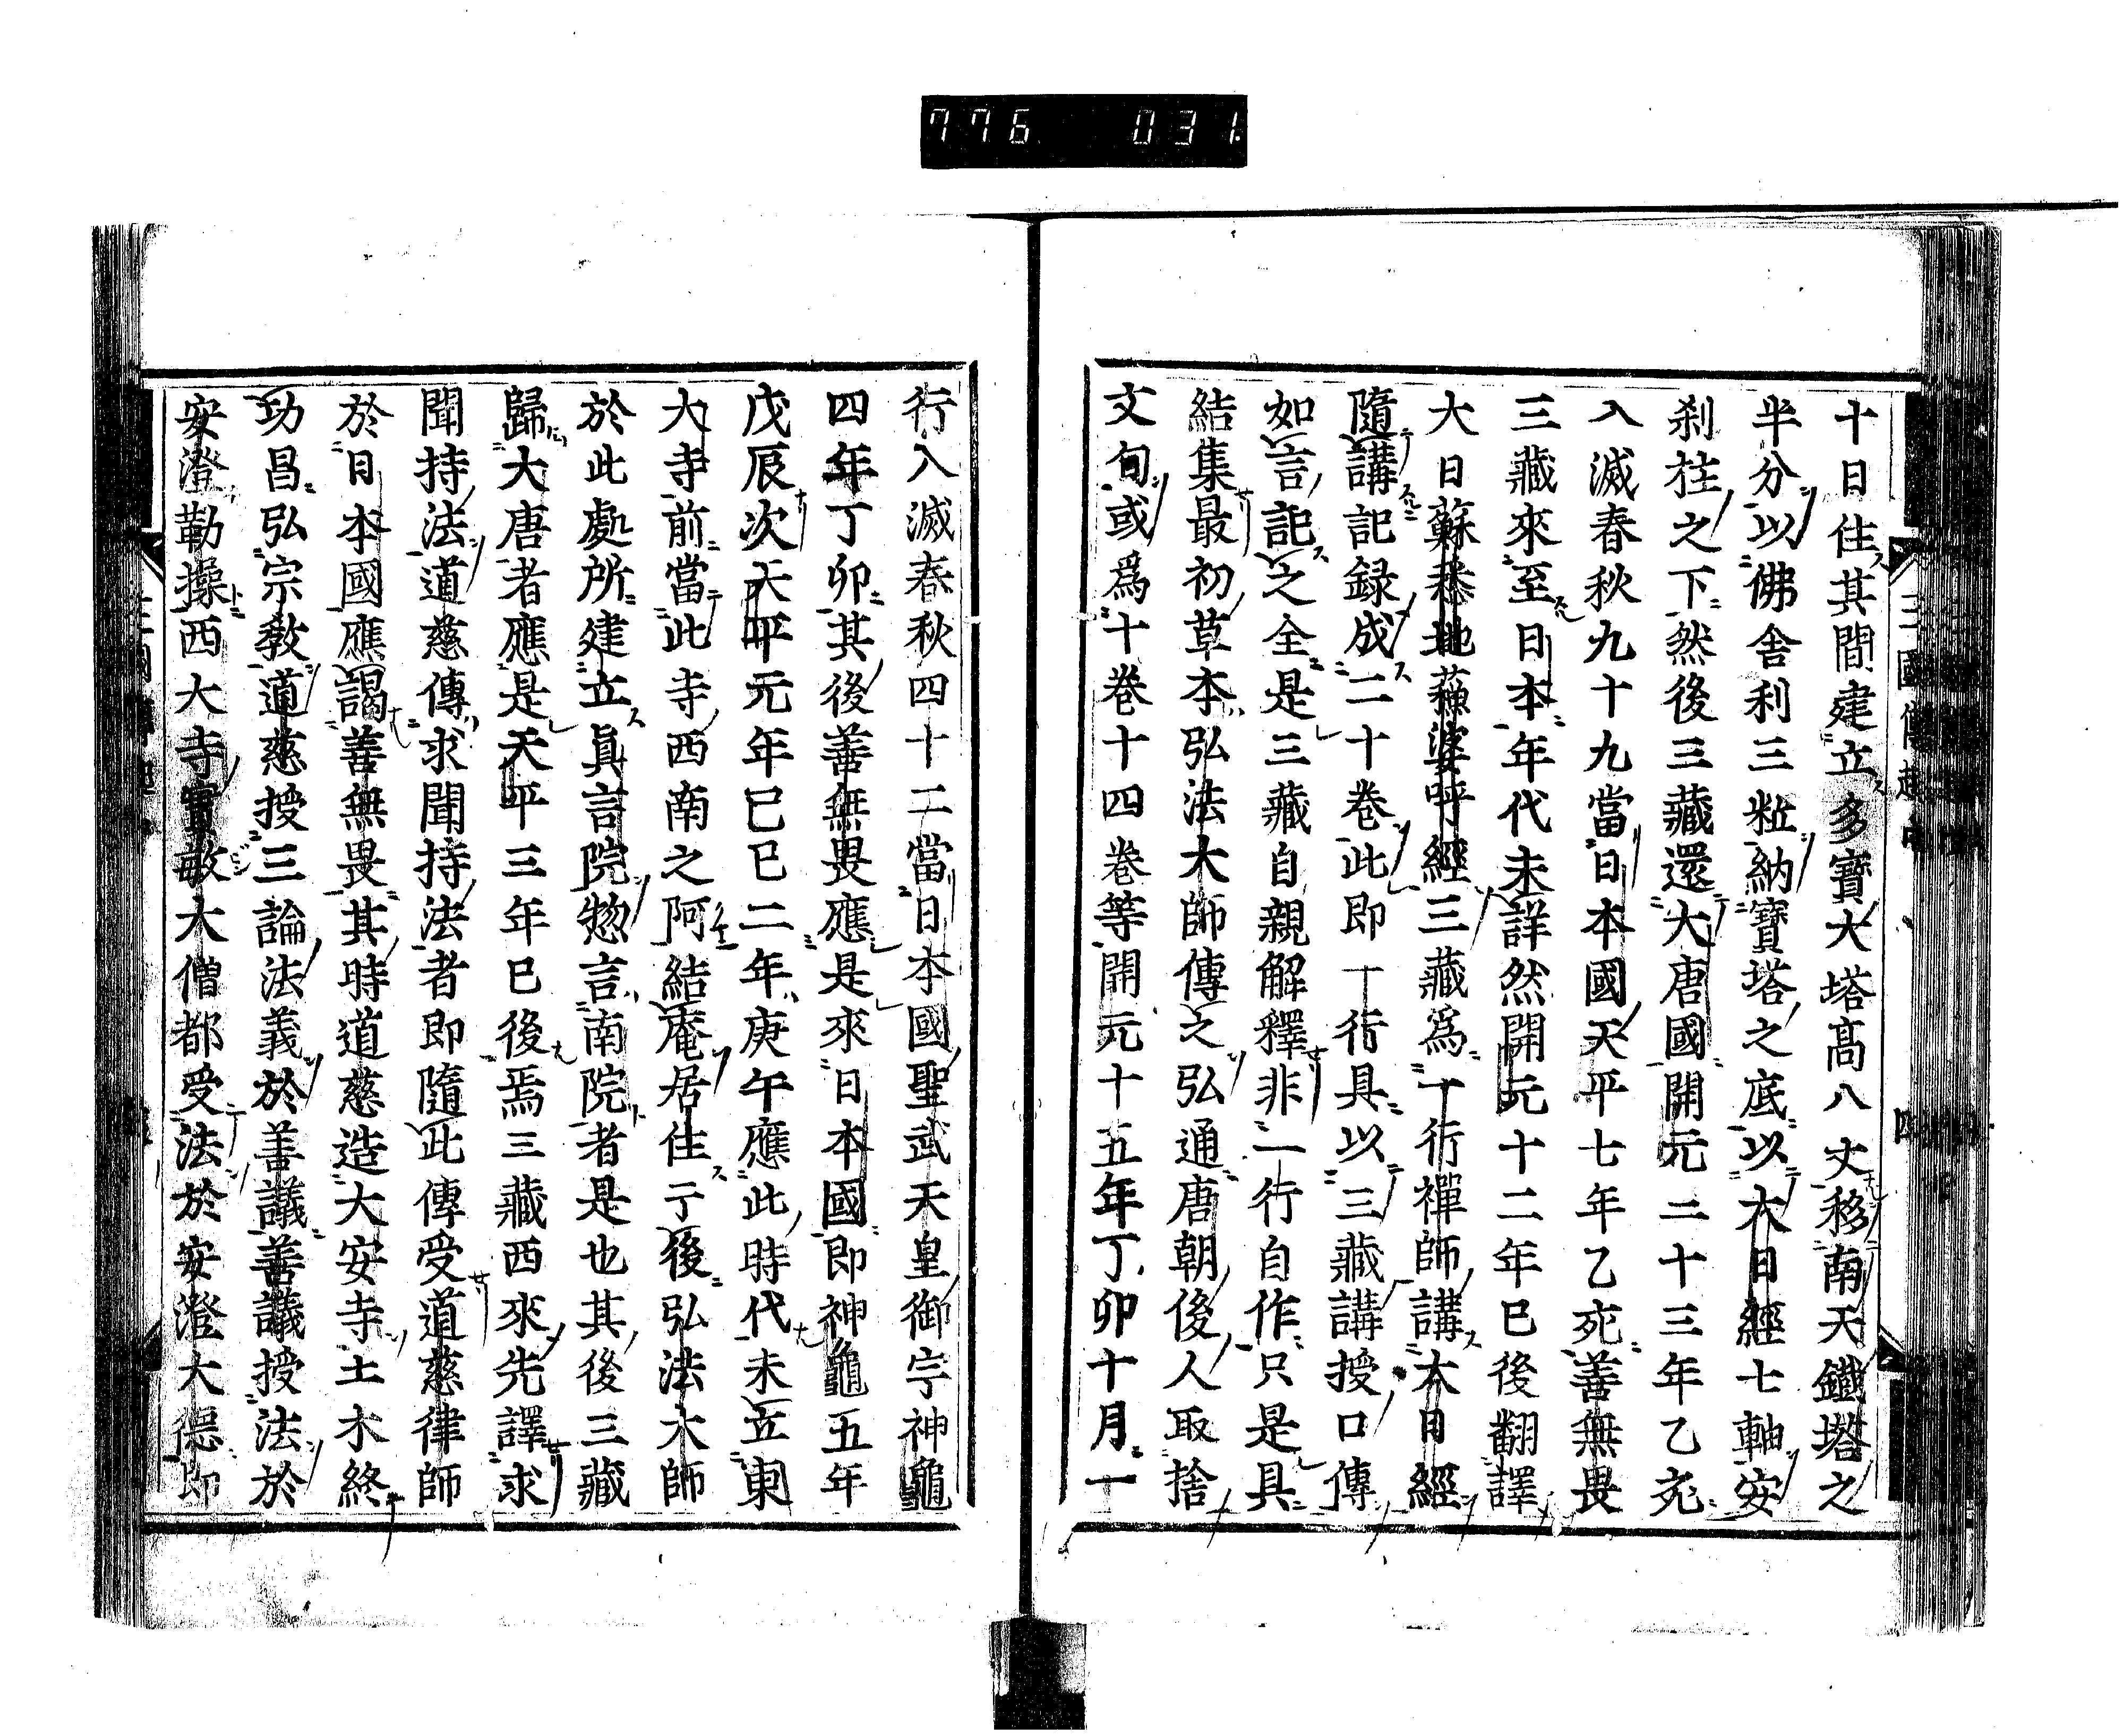 776 031
十日住其間建立多寶大塔高八丈移南天鐵塔之
半分以佛舎利三粒納寶塔之底以大日經七軸安
刹柱之下然後三藏還大唐國開元二十三年乙亥
入滅春秋九十九當日本國天平七年乙亥善無畏
三藏來至日本年代未詳然開元十二年已後翻譯
大日蘇悉地蘓婆呼經三藏爲一行禪師講大日經
隨講記録成二十卷此即一行具以三藏講授口傳
如言記之全是三藏自親解釋非一行自作只是具
結集最初草本弘法大師傳之弘通唐朝後人取捨
文句或爲十卷十四卷等開元十五年丁卯十月一
行入滅春秋四十二當日本國聖武天皇御宇神龜
四年丁卯其後善無畏應是來日本國即神龜五年
戊辰次天平元年己巳二年庚午應此時代未立東
大寺前當此寺西南之阿結庵居住亍後弘法大師
於此處所建立眞言院惣言南院者是也其後三藏
歸大唐者應是天平三年已後焉三藏西來先譯求
聞持法道慈傳求聞持法者即隨此傳受道慈律師
於日本國應謁善無畏其時道慈造大安寺土木終
功昌弘宗教道慈授三論法義於善議善議授法於
安澄勤操西大寺實敏大僧都受法於安澄大德即